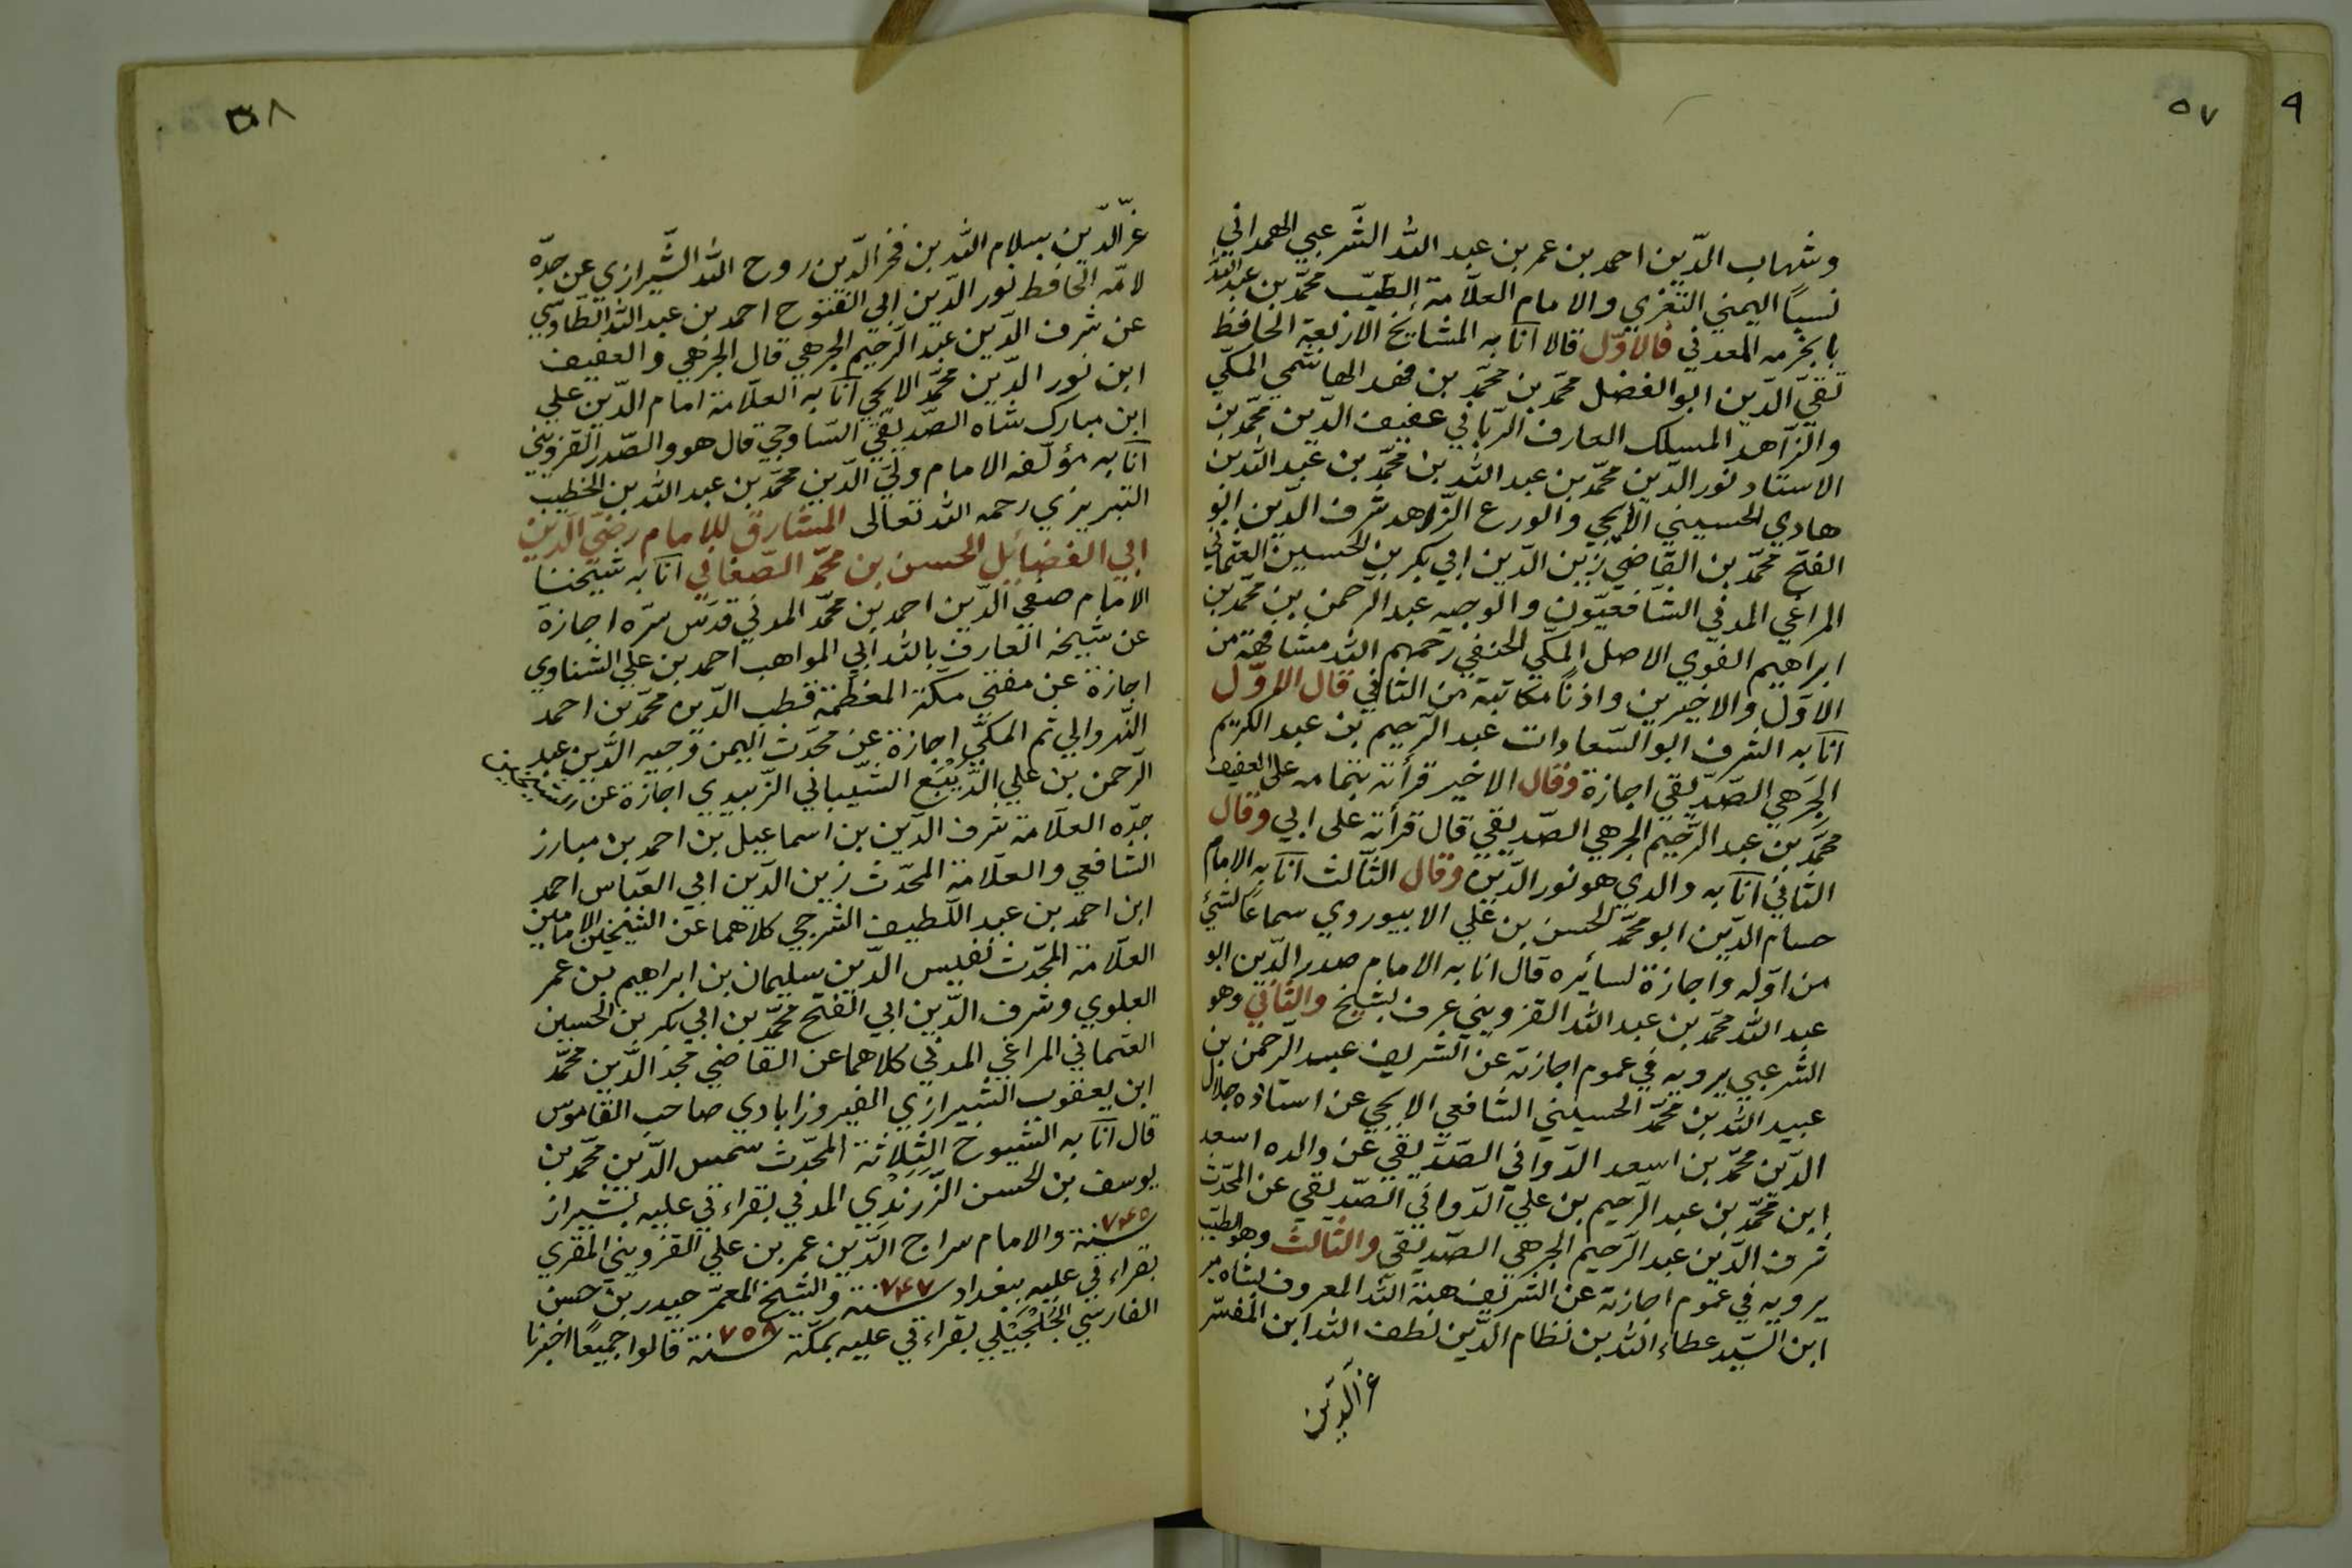 ٥٧
٩
وشهاب الدّين احمد بن عمر بن عبد الله الشّرعبي الهمداني
نسبًا اليمني التعزي والامام العلّامة الطيّب محمّد بن عبد الله
بابخرمه العدني فالاوّل قالا انا به المشايخ الاربعة الحافظ
تقيّ الدّين ابو الفضل محمّد بن محمّد بن فهد الهاشمي المكّي
والزّاهد المسلك العارف الرّباني عفيف الدّين محمّد بن
الاستاد نور الدّين محمّد بن عبد الله بن محمّد بن عبد الله بن
هادي الحسيني الايجي والورع الزّاهد شرف الدّين ابو
الفتح محمّد بن القاضي زين الدّين ابي بكر بن الحسين العثماني
المراغي المدني الشّافعيّون والوجيه عبد الرّحمن بن محمّد بن
ابراهيم الفوي الاصل المكّي الحنفي رحمهم الله مشافهة من
الاوّل والاخيرين واذنًا مكاتبة من الثاني قال الاوّل
انا به الشرف ابو السّعادات عبد الرّحيم بن عبد الكريم
الجرهي الصّدّيقي اجازة وقال الاخير قرأته بتمامه على العفيف
محمّد بن عبد الرّحيم الجرهي الصّدّيقي قال قرأته على ابي وقال
الثاني انا به والدي هو نور الدّين وقال الثالث انا به الامام
حسام الدّين ابو محمّد الحسن بن علي الابيوردي سماعًا لشئ
من اوّله واجازة لسائره قال انا به الامام صدر الدّين ابو
عبد الله محمّد بن عبد الله القزويني عرف بشيخ والثاني وهو
الشرعبي يرويه في عموم اجازته عن الشريف عبد الرّحمن بن
عبيد الله بن محمّد الحسيني الشافعي الايجي عن استاده جلال
الدّين محمّد بن اسعد الدّواني الصّدّيقي عن والده اسعد
ابن محمّد بن عبد الرحيم بن علي الدّواني الصّدّيقي عن المحدّث
شرف الدّين عبد الرّحيم الجرهي الصّدّيقي والثالث وهو الطيّب
يرويه في عموم اجازته عن الشريف هبة الله المعروف بشاه مير
ابن السّيّد عطاء الله بن نظام الدّين لطف الله ابن المفسّر
عزّ الدّين
٥٨
عزّ الدّين سلام الله بن فخر الدّين روح الله الشّيرازي عن جدّه
لامّه الحافظ نور الدّين ابي الفتوح احمد بن عبد الله الطّاوسي
عن شرف الدّين عبد الرّحيم الجرهي قال الجرهي والعفيف
ابن نور الدّين محمّد الايجي انا به العلّامة امام الدّين علي
ابن مبارك شاه الصّدّيقي السّاوجي قال هو والصّدر القزويني
انا به مؤلّفه الامام وليّ الدّين محمّد بن عبد الله بن الخطيب
التبريزي رحمه الله تعالى المشارق للامام رضيّ الدّين
ابي الفضائل الحسن بن محمّد الصّغاني انا به شيخنا
الامام صفيّ الدّين احمد بن محمّد المدني قدّس سرّه اجازة
عن شيخه العارف بالله ابي المواهب احمد بن علي الشناوي
اجازة عن مفتي مكّة المعظّمة قطب الدّين محمّد بن احمد
النّهروالي ثم المكّي اجازة عن محدّث اليمن وجيه الدّين عبد
الرّحمن بن علي الدّيبع الشّيباني الزّبيدي اجازة عن
جدّه العلّامة شرف الدّين بن اسماعيل بن احمد بن مبارز
الشافعي والعلّامة المحدّث زين الدّين ابي العبّاس احمد
ابن احمد بن عبد اللّطيف الشرجي كلاهما عن الشيخين الامامين
العلّامة المحدّث نفيس الدّين سليمان بن ابراهيم بن عمر
العلوي وشرف الدّين ابي الفتح محمّد بن ابي بكر بن الحسين
العثماني المراغي المدني كلاهما عن القاضي مجد الدّين محمّد
ابن يعقوب الشيرازي الفيروزابادي صاحب القاموس
قال انا به الشيوخ الثلاثة المحدّث شمس الدّين محمّد بن
يوسف بن الحسن الزّرندي المدني بقراءتي عليه بشيراز
سنة ٧٤٥ والامام سراج الدّين عمر بن علي القزويني المقري
بقراءتي عليه ببغداد سنة ٧٤٧ والشيخ المعمّر حيدر بن حسن
الفارسي بقراءتي عليه بمكّة سنة ٧٥٨ قالوا جميعًا اخبرنا